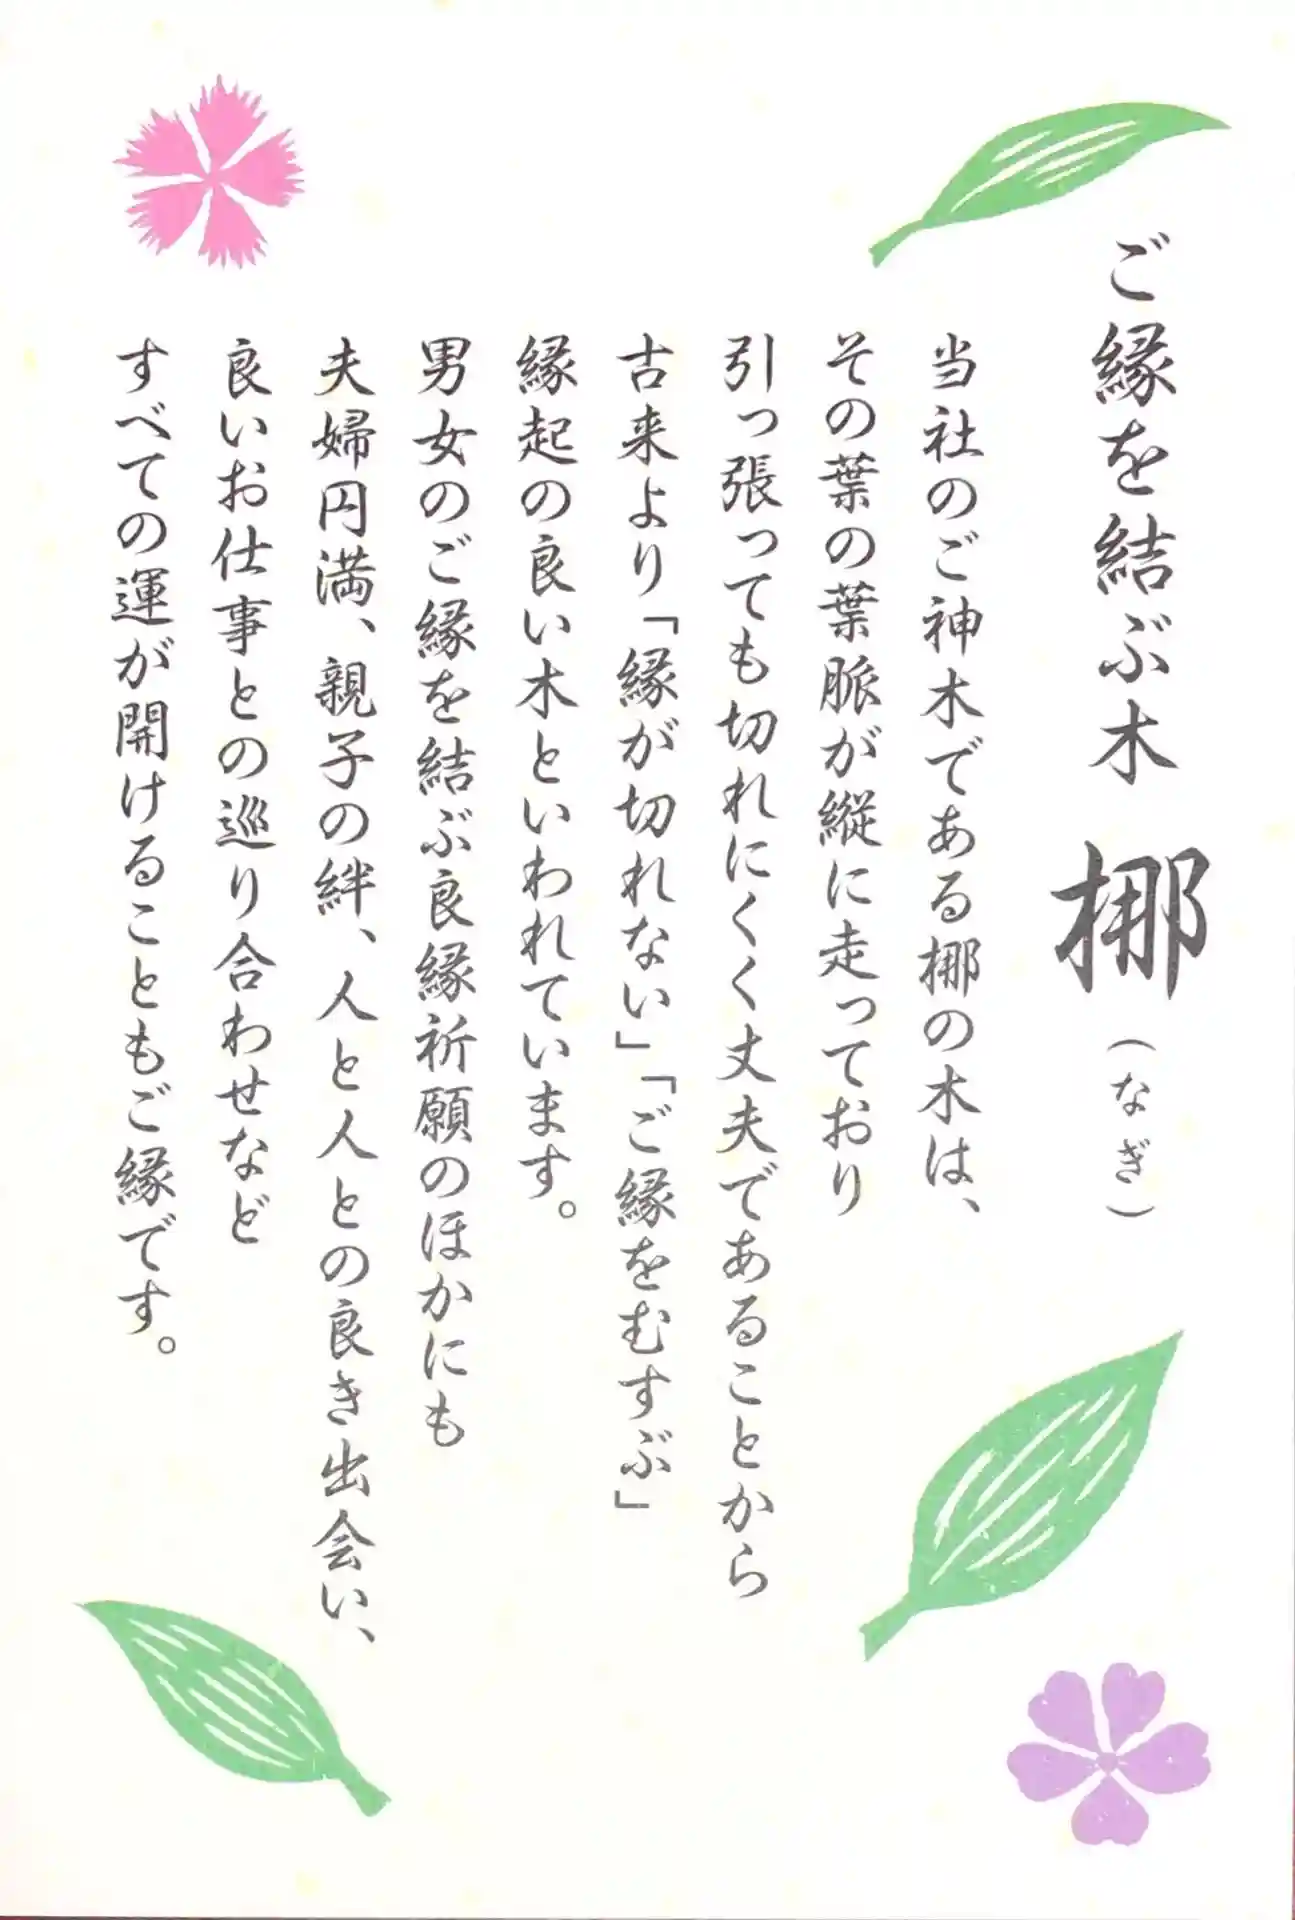 ご縁を結ぶ木 梛（なぎ）
当社のご神木である梛の木は、
その葉の葉脈が縦に走っており
引っ張っても切れにくく丈夫であることから
古来より「縁が切れない」「ご縁をむすぶ」
縁起の良い木といわれています。
男女のご縁を結ぶ良縁祈願のほかにも
夫婦円満、親子の絆、人と人との良き出会い、
良いお仕事との巡り合わせなど
すべての運が開けることもご縁です。